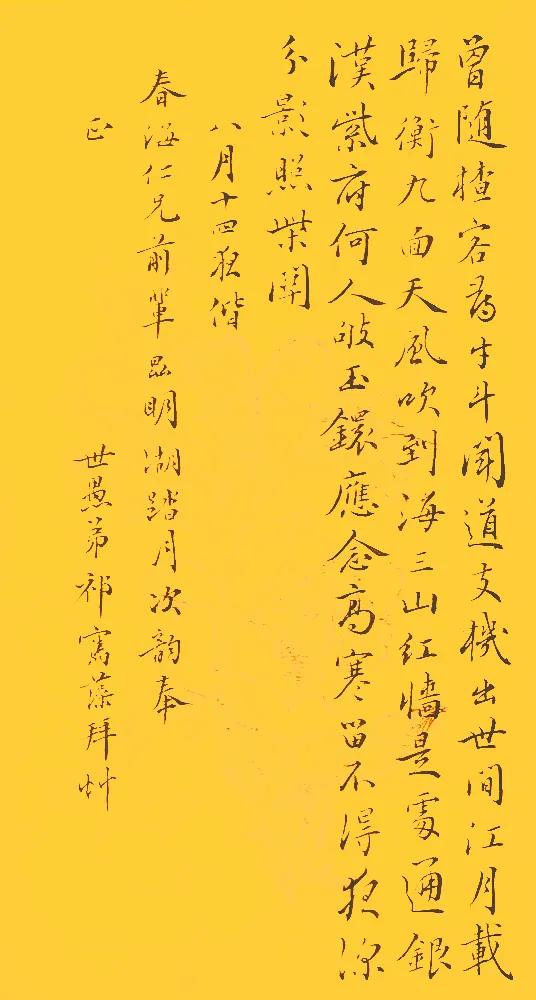 曾随楂客为牛斗闻道支機出世间江月載
歸衡九面天風吹到海三山红牆是處通銀
漢紫府何人敂玉鐶應念高寒留不得夜深
分影照柴関
八月十四夜偕
春海仁兄前輩昆明湖踏月次韵奉
正
世愚弟祁寯藻拜艸